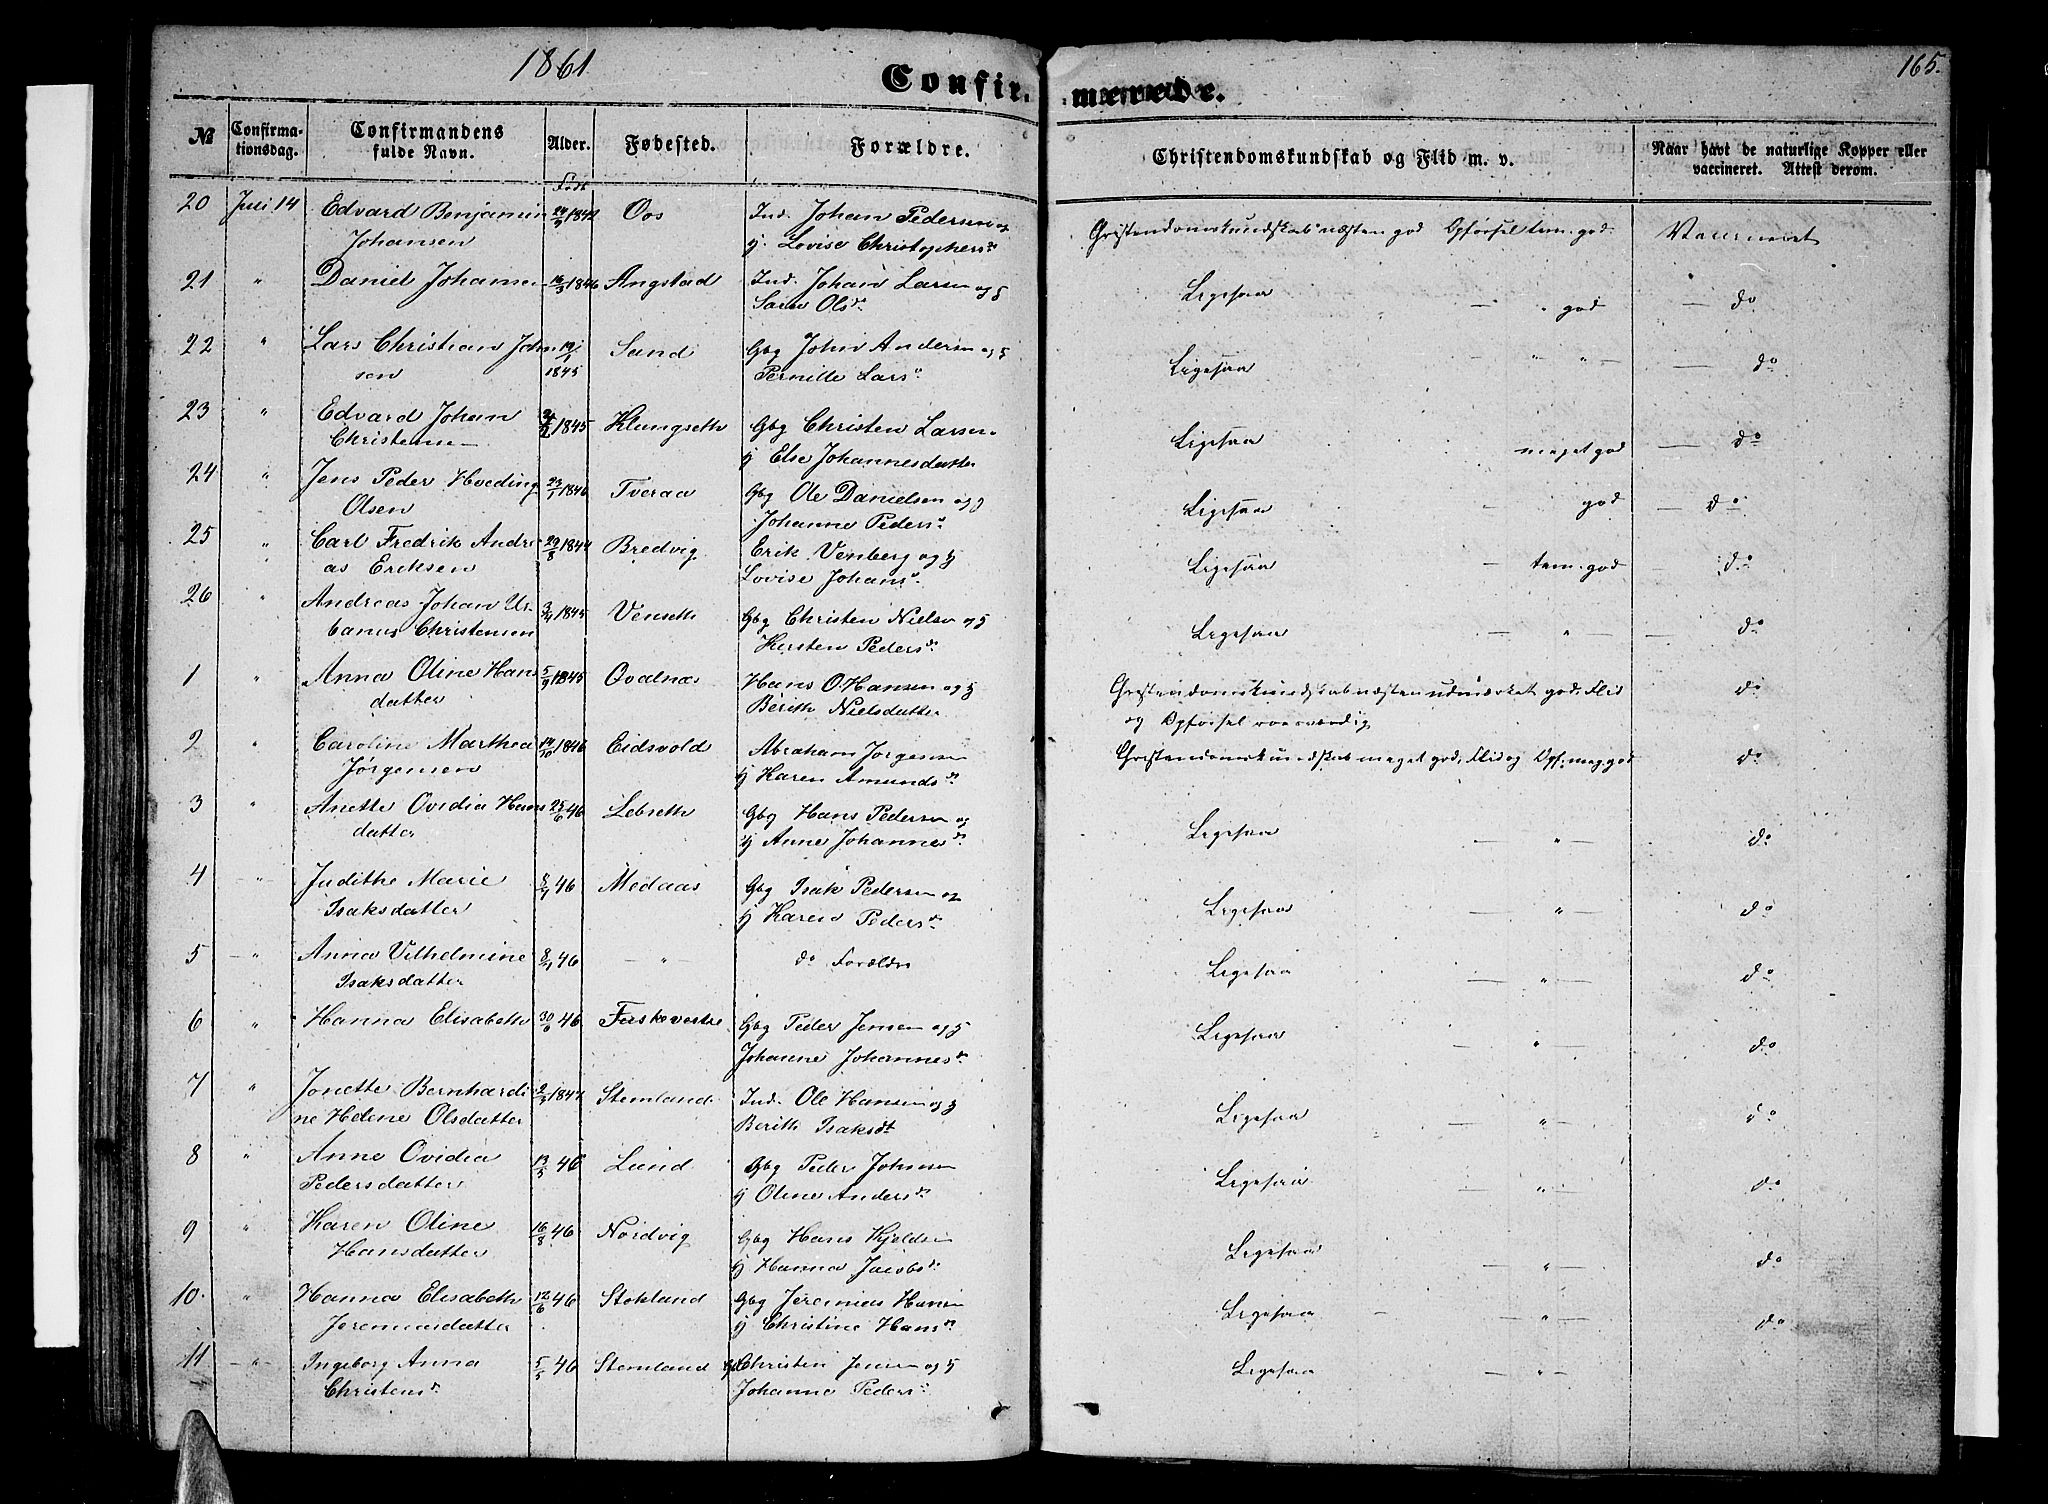 1861
165.
Confirmerede.
№ Confirmationsdag. Confirmandens fulde Navn. Alder. Fødested. Forældre. Christendomskundskab og Flid m. v. Naar havt de naturlige Kopper eller vaccineret. Attest derom.
Født
20 Juli 14 Edvard Benjamin 1842 Oos Ind. Johan Pedersen og Christendomskundskab næsten god Opførsel tem. god. Vaccineret
Johansen hj. Lovise Christophersd.
21 " Daniel Johansen 1846 Angstad Ind. Johan Larsen og hj Ligesaa — " god — do
Olsd.
22 " Lars Christian John 1845 Sand Gbg John Andersen og hj Ligesaa — " " — do
sen Pernille Larsd.
23 " Edvard Johan 1845 Klungseth Gbg Christen Larsen Ligesaa meget god — do
Christensen hj Else Johannesdatter
24 " Jens Peder Hveding 23/1 1846 Tveraa Gbg Ole Danielsen og hj Ligesaa god — do
Olsen Johanne Pedersd.
25 " Carl Fredrik Andre 29/8 1844 Bredvig Erik Venberg og hj Ligesaa — tem. god — do
as Eriksen Lovise Johansd.
26 " Andreas Johan Ur- 1845 Venseth Gbg Christen Nielsen og hj Ligesaa — " — — do
banus Christensen Kersten Pedersd.
1 " Anna Oline Hans 5/9 1845 Qvalnæs Hans O. Hansen og hj Christendomskundskab næsten udmærket god. Flid do
datter Berith Nielsdatter og Opførsel roesværdig
2 " Caroline Marthea 14/10 1846 Eidsvold Abraham Jørgensen Christendomskundskab meget god, Flid og Opf. meg. god do
Jørgensen hj Karen Amundsd.
3 " Anette Ovidia Hans 25/6 46 Lebseth Gbg Hans Pedersen og Ligesaa — " — do
datter hj Anne Johannesd.
4 " Judithe Marie 46 Medaas Gbg Isak Pedersen og Ligesaa — " — do
Isaksdatter hj Karen Pedersd.
5 — " Anna Vilhelmine 46 — " — do Forældre Ligesaa — " — do
Isaksdatter
6 " Hanna Elisabeth 46 Gbg Peder Jensen og hj Ligesaa — " — do
Johanne Johannesd.
7 " Jonette Bernhardi Stemland Ind. Ole Hansen og hj Ligesaa — " — do
ne Helene Olsdatter Berith Isaksdt
8 " Anne Ovidia 13/5 46 Lund Gbg Peder Johnsen Ligesaa — " — do
Pedersdatter hj Oline Andersd.
9 " Karen Oline 16/8 46 Nordvig Gbg Hans Kjeldsen Ligesaa — " — do
Hansdatter hj Hanna Jacobsd.
10. " Hanna Elisabeth 12/6 46 Stokland Gbg Jeremias Hansen Ligesaa — " — do
Jeremiasdatter hj Christine Hansd.
11 — " — Ingeborg Anna 5/5 46 Stemland Gbg Christen Jensen og hj Ligesaa — " —
Christensd. Johanna Pedersd.